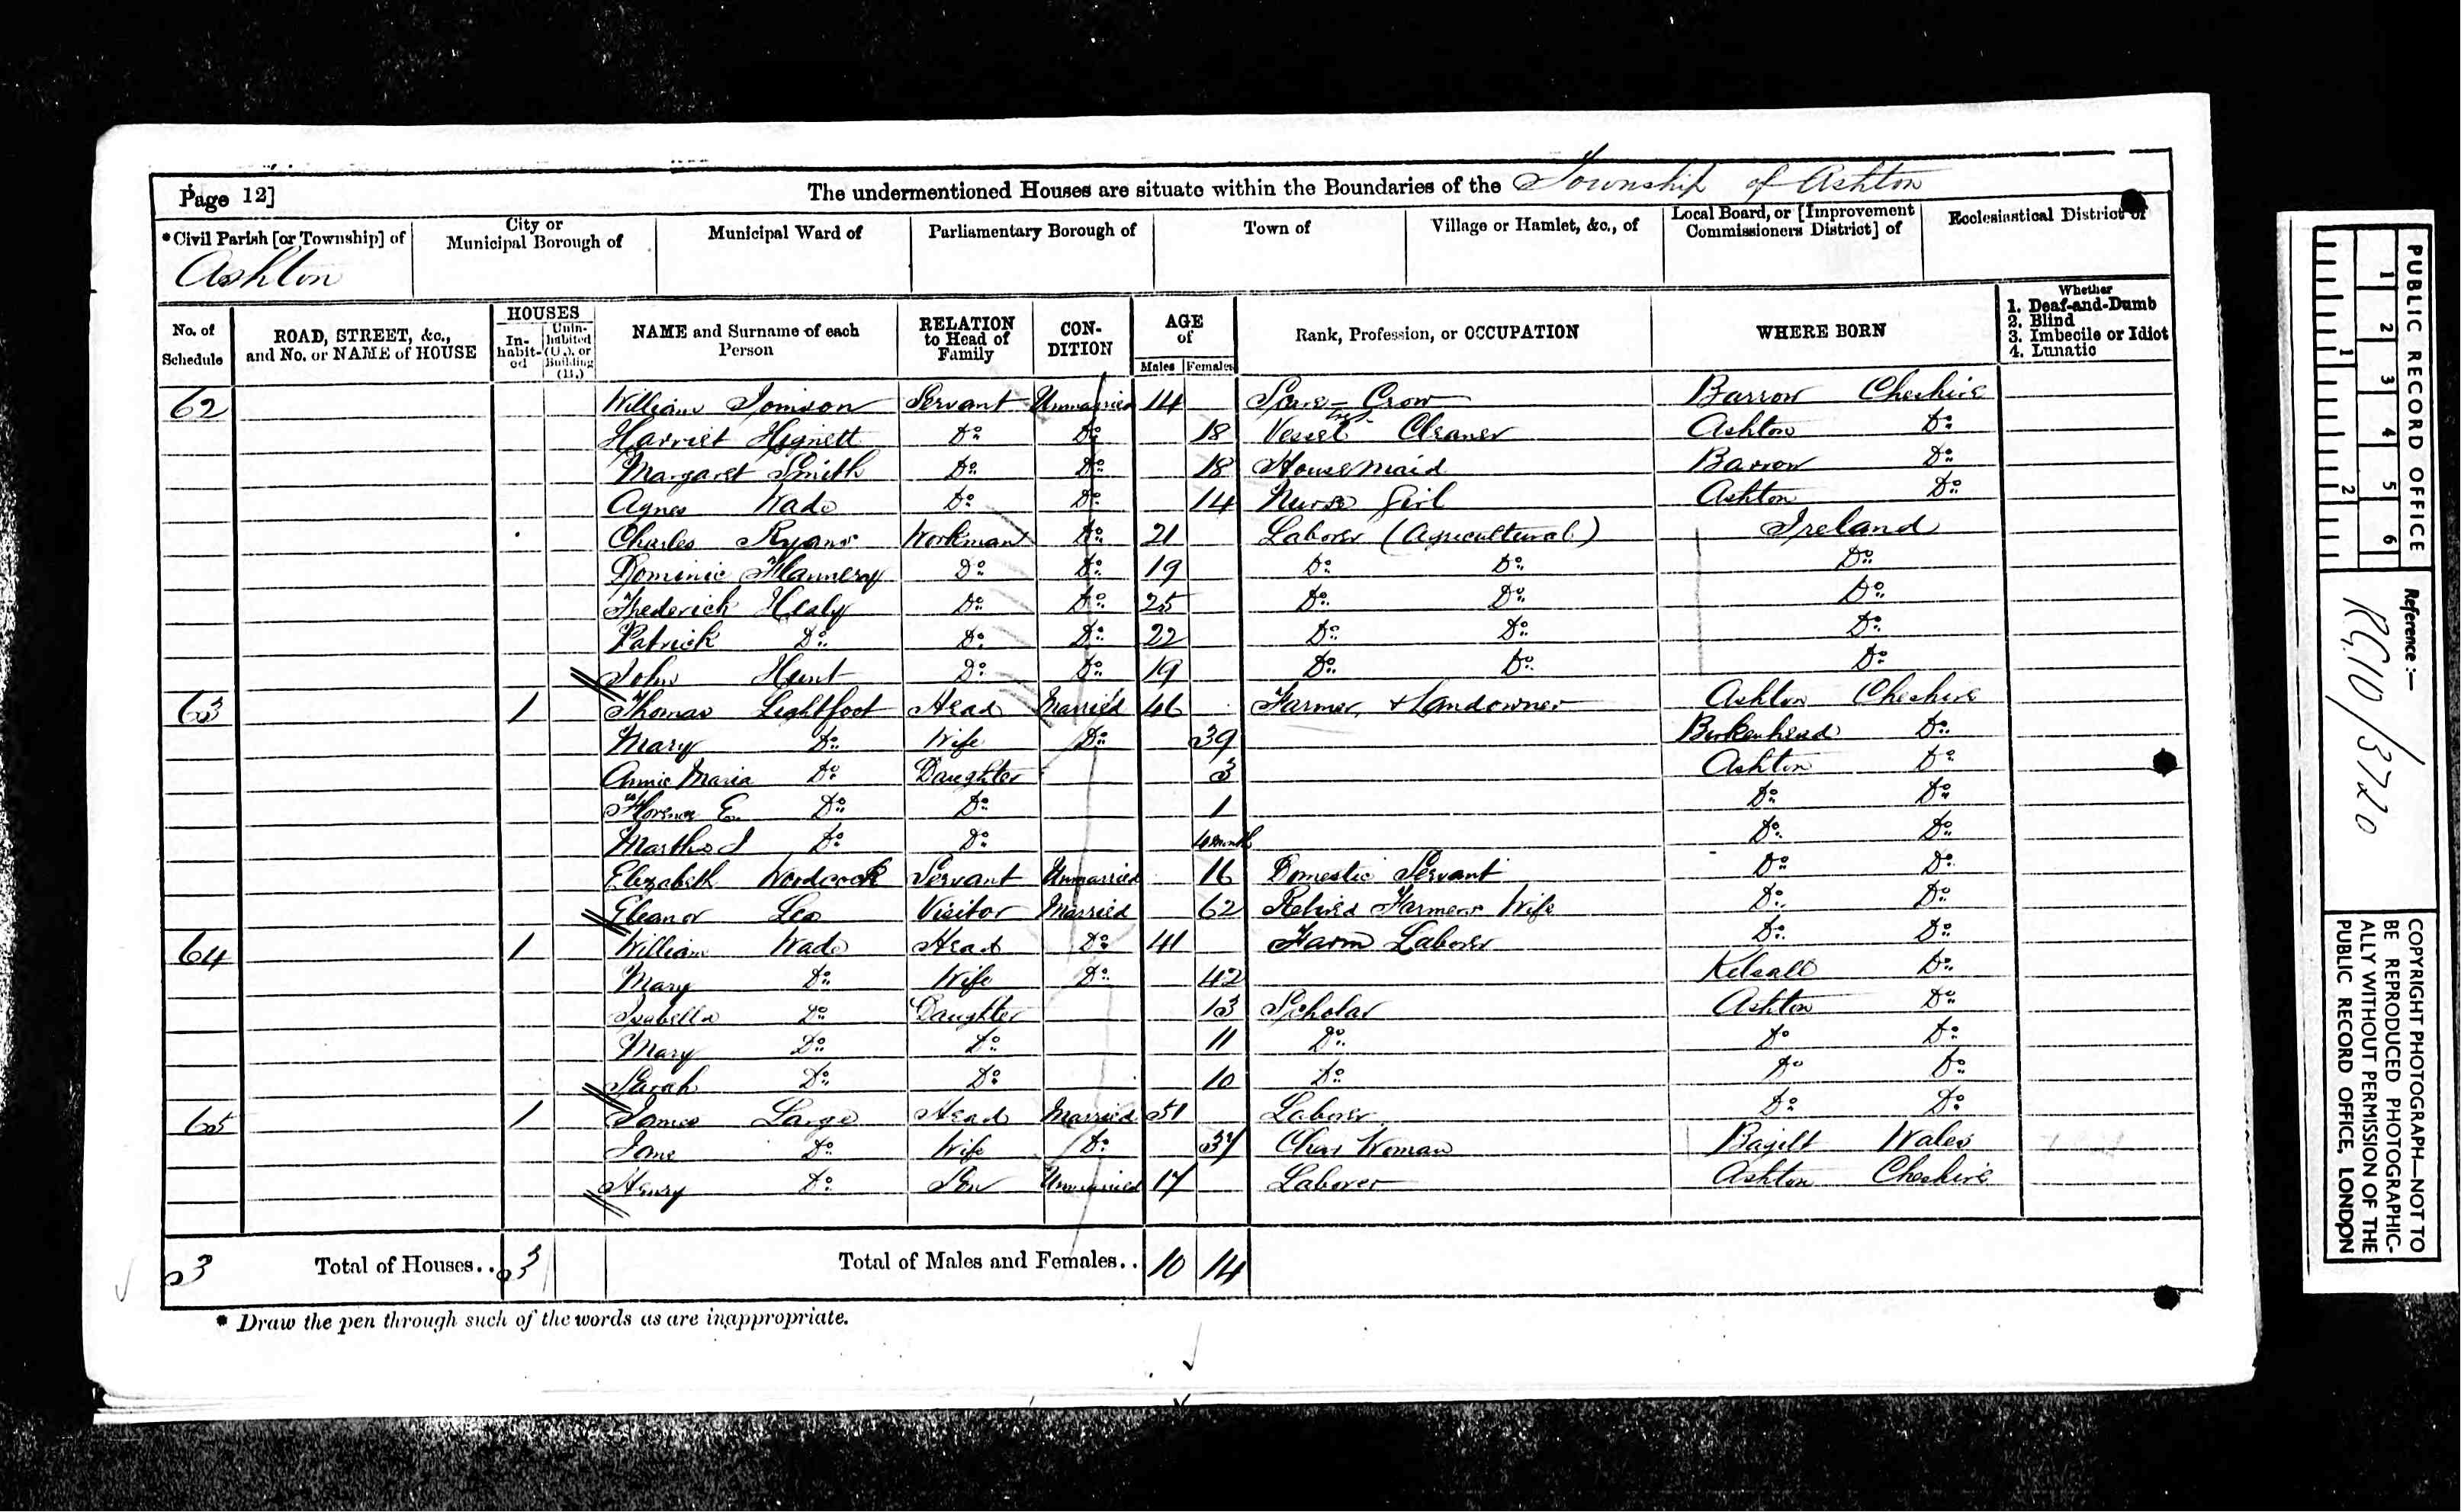 Page 12] The undermentioned Houses are situate within the Boundaries of the Township of Ashton
*Civil Parish [or Township] of City or Municipal Borough of Municipal Ward of Parliamentary Borough of Town of Village or Hamlet, &c., of Local Board, or [Improvement Commissioners District] of Ecclesiastical District of
Ashton
No. of Schedule ROAD, STREET, &c., and No. or NAME of HOUSE HOUSES Inhabited Uninhabited (U.), or Building (B.) NAME and Surname of each Person RELATION to Head of Family CONDITION AGE of Males Females Rank, Profession, or OCCUPATION WHERE BORN Whether 1. Deaf-and-Dumb 2. Blind 3. Imbecile or Idiot 4. Lunatic
62 William Servant Unmarried 14 Crow Barrow Cheshire
Harriet Hignett Do 18 Vessel Cleaner Ashton Do
Margaret Smith Do Do 18 House Maid Barrow Do
Agnes Wade Do Do 14 Nurse Girl Ashton Do
Charles Workman Do 21 Laborer (Agricultural) Ireland
Dominic Flannery Do Do 19 Do Do Do
Frederick Healy Do Do 25 Do Do Do
Patrick Do Do Do 22 Do Do Do
John Hunt Do Do 19 Do Do Do
63 1 Thomas Lightfoot Head Married 46 Farmer & Landowner Ashton Cheshire
Mary Do Wife Do 39 Birkenhead Do
Annie Maria Do Daughter 3 Ashton Do
Florence E. Do Do 1 Do Do
Martha J Do Do 4 Month Do Do
Elizabeth Woodcock Servant Unmarried 16 Domestic Servant Do Do
Eleanor Lea Visitor Married 62 Retired Farmers Wife Do Do
64 1 William Wade Head Do 41 Farm Laborer Do Do
Mary Do Wife Do 42 Kelsall Do
Isabella Do Daughter 13 Scholar Ashton Do
Mary Do Do 11 Do Do Do
Sarah Do Do 10 Do Do Do
65 1 James Large Head Married 51 Laborer Do Do
Jane Do Wife Do 37 Char Woman Bagilt Wales
Henry Do Son Unmarried 17 Laborer Ashton Cheshire
3 Total of Houses.. 3 Total of Males and Females.. 10 14
* Draw the pen through such of the words as are inappropriate.
PUBLIC RECORD OFFICE
1 2 3 4 5 6
1 2
Reference :—
RG10/3720
COPYRIGHT PHOTOGRAPH—NOT TO
BE REPRODUCED PHOTOGRAPHIC-
ALLY WITHOUT PERMISSION OF THE
PUBLIC RECORD OFFICE, LONDON